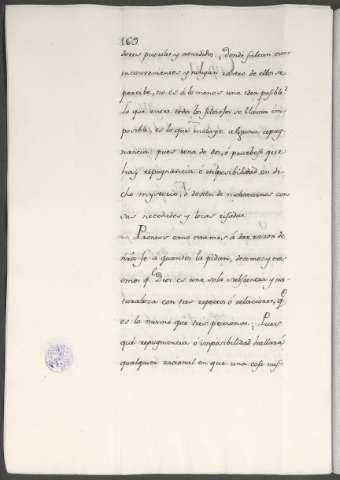 169
dores pueriles y atrevidos; donde faltan
inconvenientes y ningun rastro de ellos se
percibe, no es á lo menos una idea posible?
Lo que entre todos los filosofos se llama im-
posible, es lo que incluye alguna repug-
nancia: pues una de dos, ó pruebese que
hay repugnancia é imposibilidad en di-
cho mysterio, ó dexen de molestarnos con
sus necedades y locas risadas.
Prontos como estamos á dar razon de
nrâ fe á quantos la pidan, decimos y cre-
emos q.e Dios es una sola substancia y na-
turaleza con tres respetos ó relaciones, q.e
es lo mismo que tres personas. Pues
qué repugnancia ó imposibilidad hallará
qualquier racional en que una cosa mis-